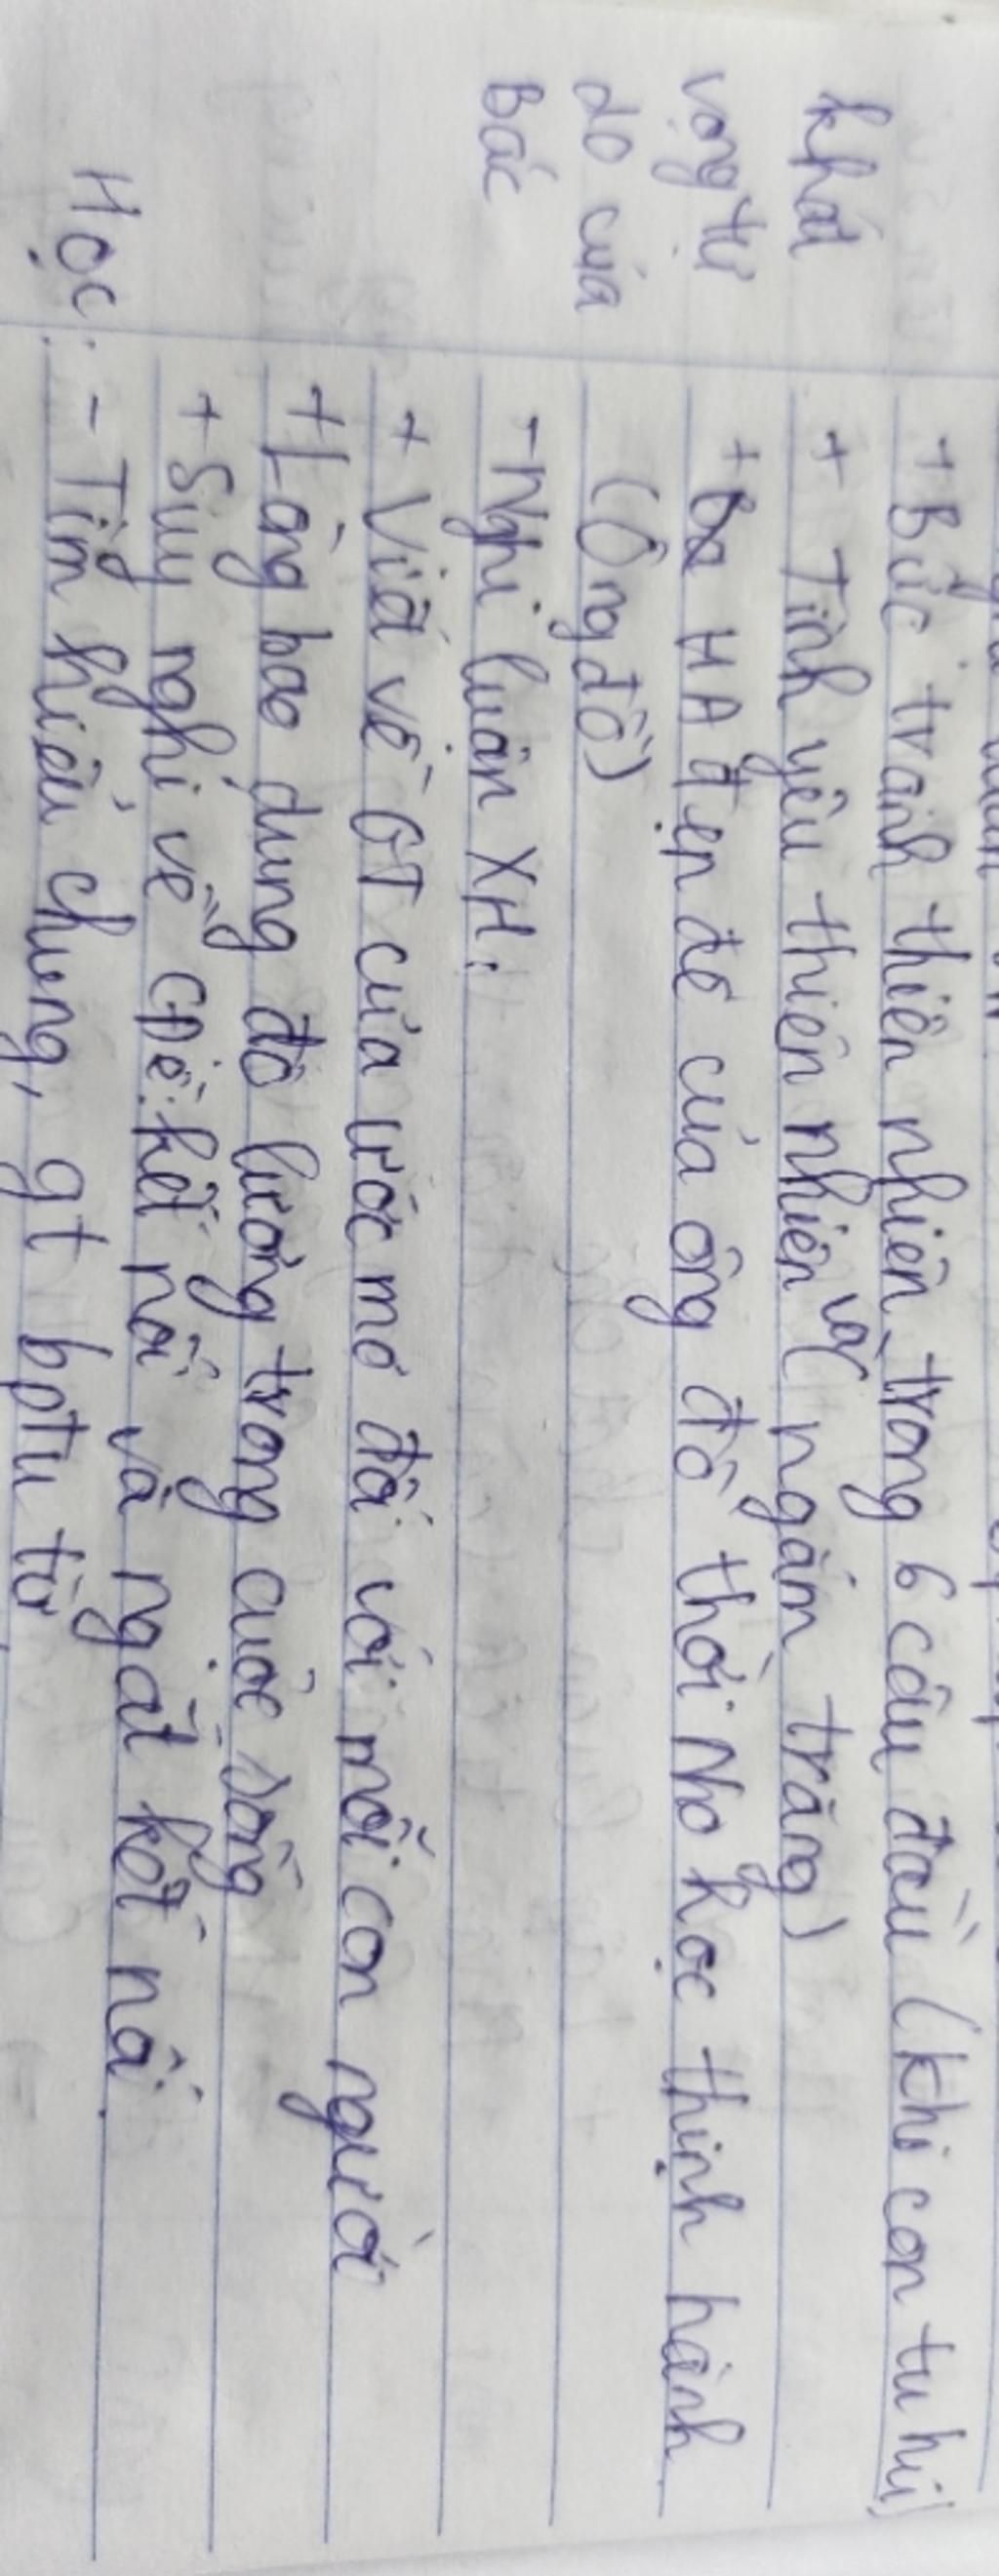 + Bức tranh thiên nhiên trong 6 câu đầu (khi con tu hú)
khát + Tình yêu thiên nhiên và ngắm trăng)
vọng tự + HA đẹp đẽ của ông đồ thời Nho học thịnh hành
do của (Ông đồ)
Bác - Nghị luận XH:
+ Viết về GT của ước mơ đối với mỗi con người
+ Lòng bao dung độ lượng trong cuộc sống
+ Suy nghĩ về CĐề: kết nối và ngắt kết nối.
Học: - Tìm hiểu chung, gt bptu từ